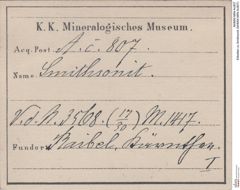 K. K. Mineralogisches Museum.
Acq. Post. A. c. 807.
Name Smithsonit.
V. d. N. 3568. (17/30) M. 1417.
Fundort Raibel, Kärnthen.
I